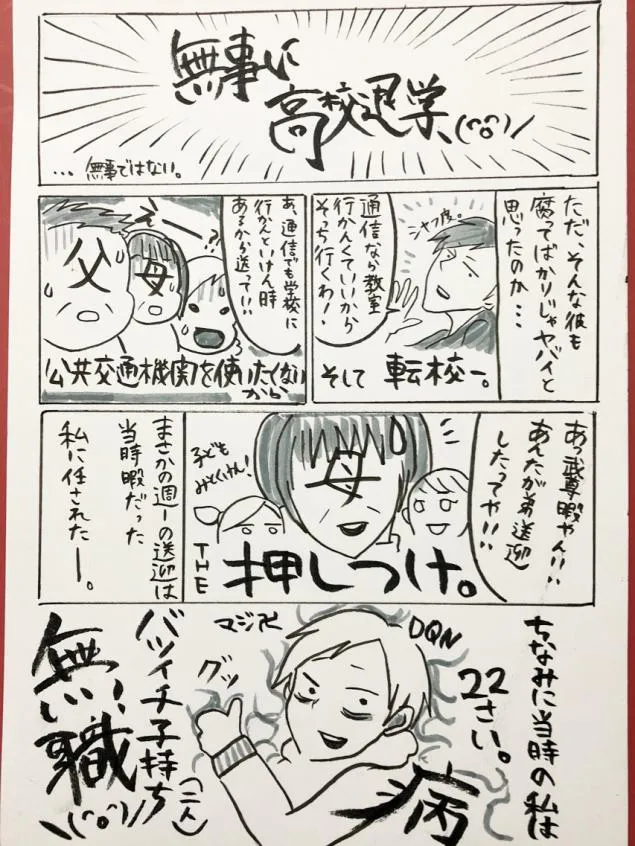 無事に
高校退学＼(^o^)／
…無事ではない。
ただ、そんな彼も
腐ってばかりじゃヤバイと
思ったのか…
シャフ度。
通信なら教室
行かんくていいから
そっち行くわ！
そして 転校ー。
あ、通信でも学校に
行かんといけん時
あるから送って!!
えーー!?
父
母
公共交通機関を使いたくない
から
あっ武尊暇やん!!
あんたが弟送迎
したってや!!
母
子ども
みとくけん！
THE
押しつけ。
まさかの週一の送迎は
当時暇だった
私に任されたー。
ちなみに当時の私は
22さい。
DQN
病
マジ卍
グッ
バツイチ子持ち
(二人)
無職
＼(^o^)／